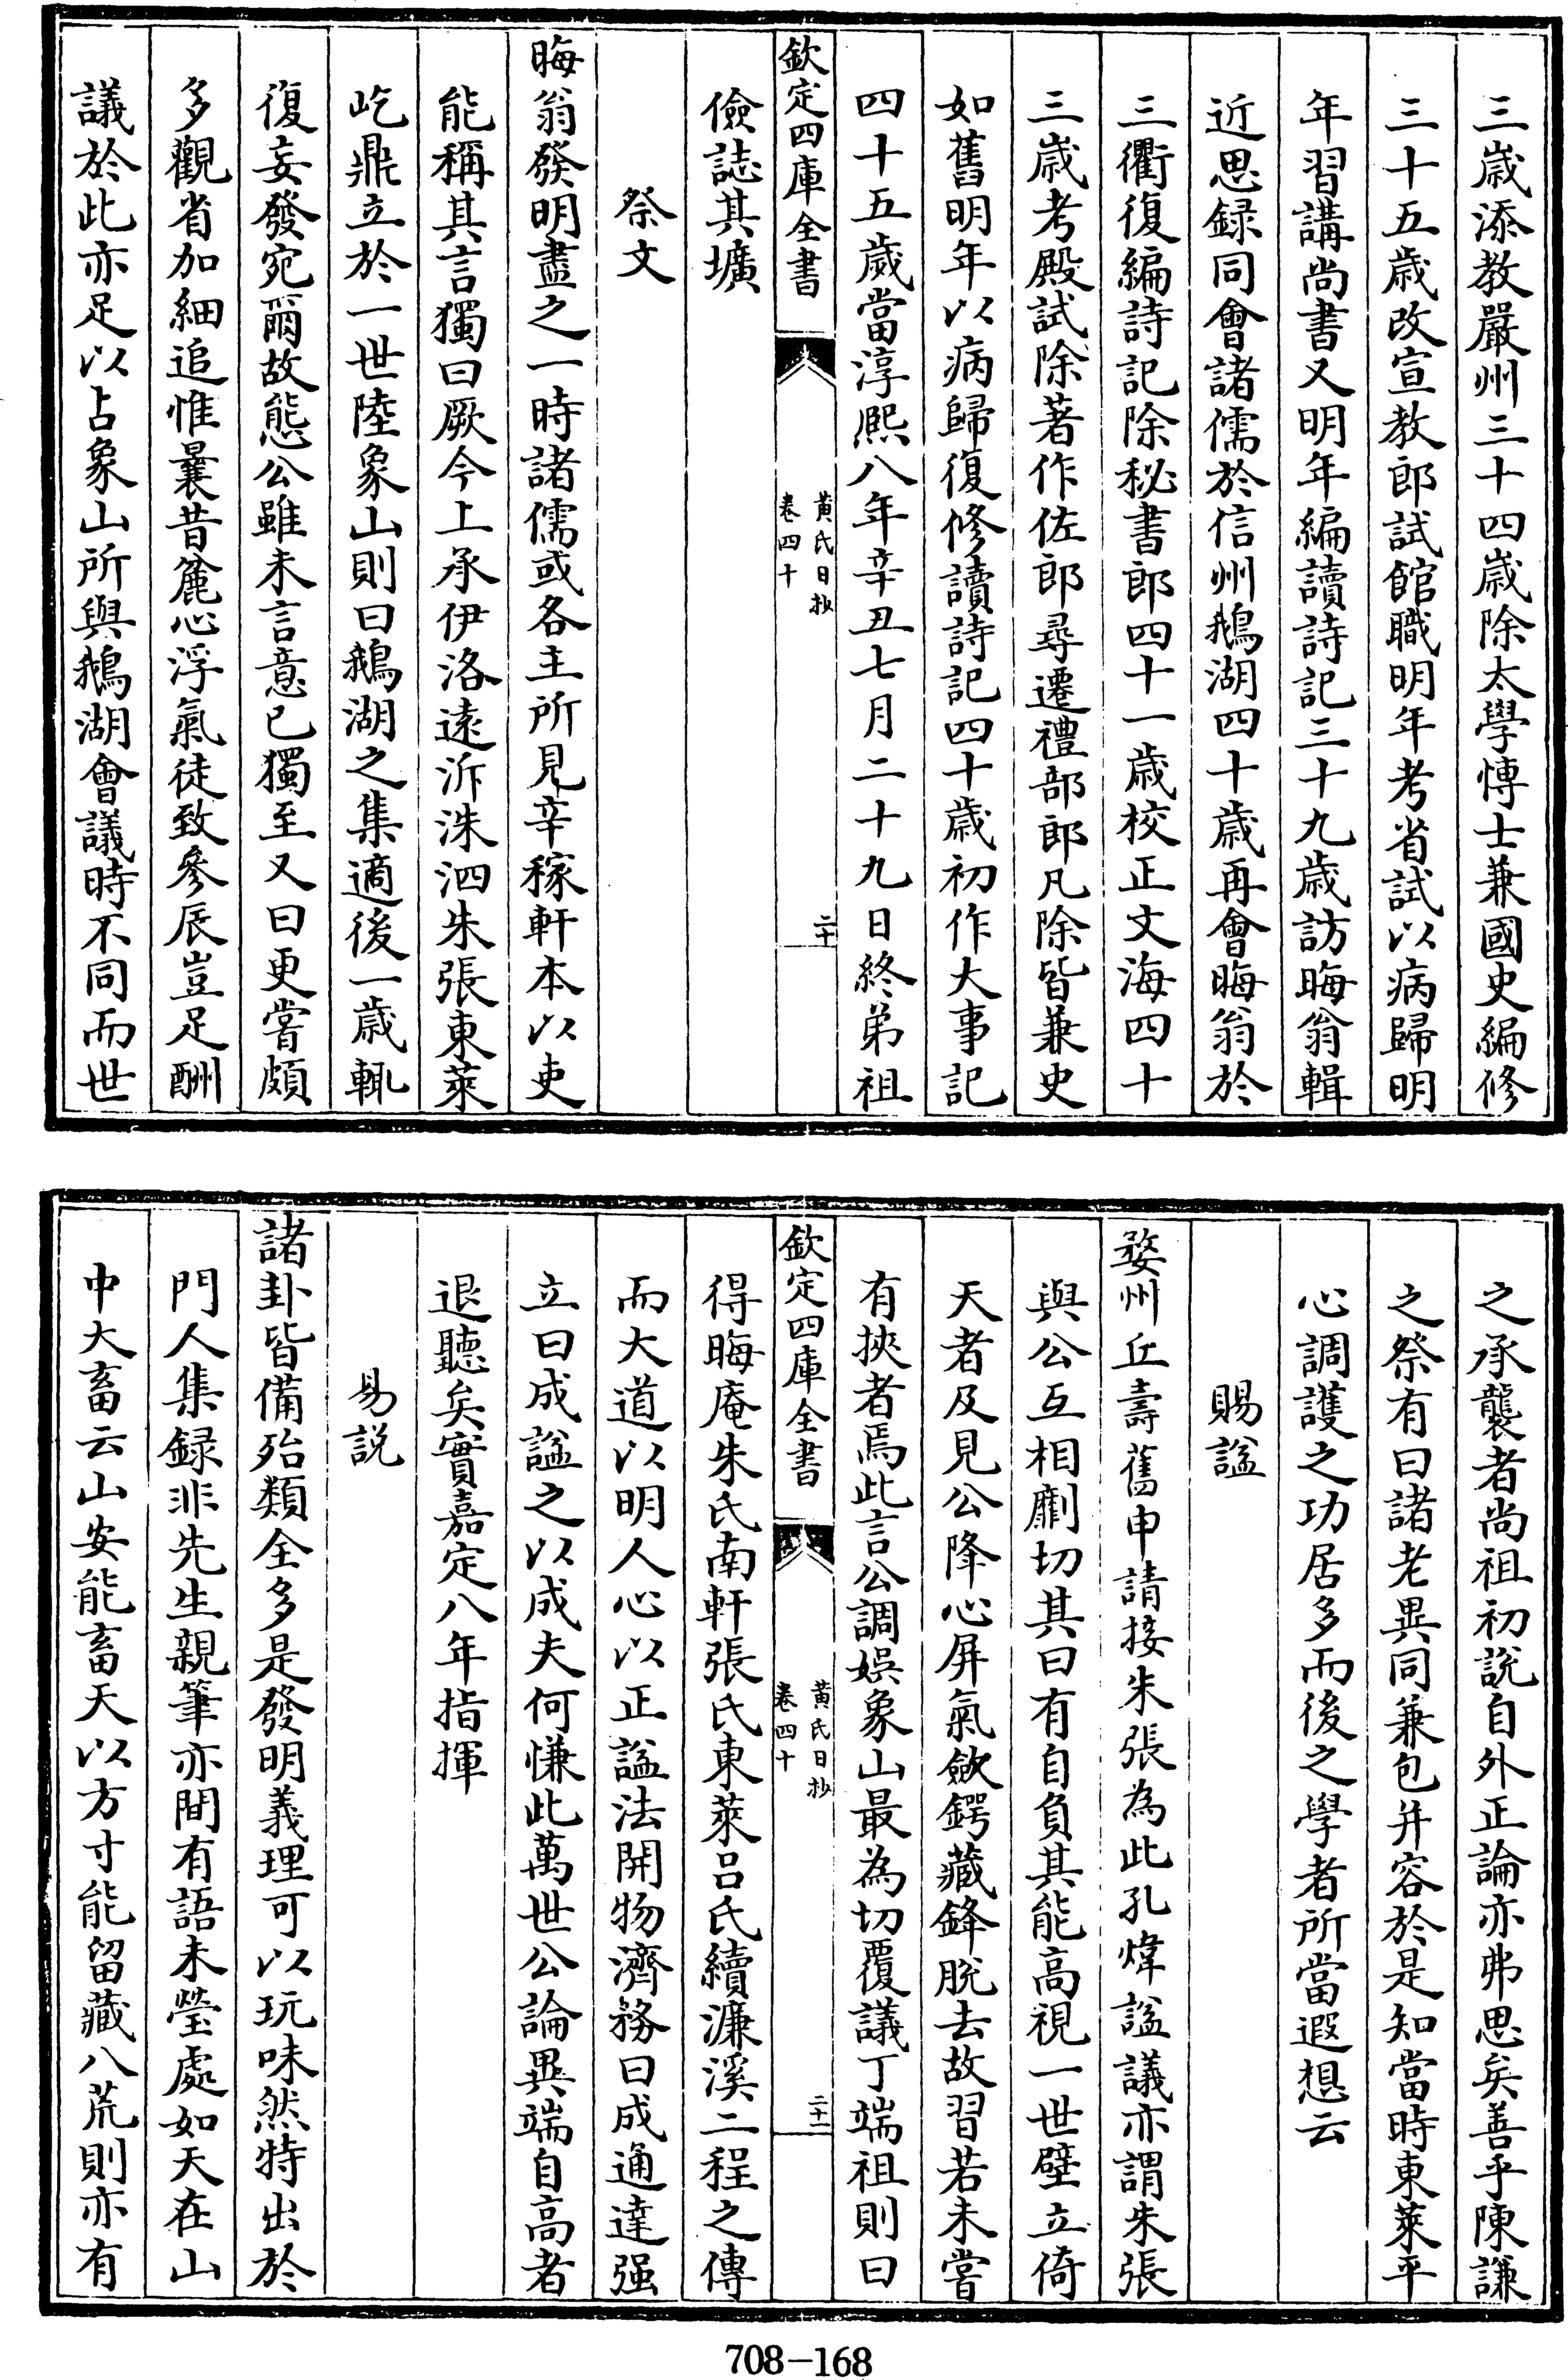 三歳添教嚴州三十四歳除太學博士兼國史編修
三十五歳改宣教郎試館職明年考省試以病歸明
年習講尚書又明年編讀詩記三十九歳訪晦翁輯
近思録同會諸儒於信州鵝湖四十歳再會晦翁於
三衢復編詩記除秘書郎四十一歳校正文海四十
三歳考殿試除著作佐郎尋遷禮部郎凡除皆兼史
如舊明年以病歸復修讀詩記四十歳初作大事記
四十五歲當淳熙八年辛丑七月二十九日終弟祖
欽定四庫全書
黄氏日抄
卷四十
二十
儉誌其壙
祭文
晦翁發明盡之一時諸儒或各主所見辛稼軒本以吏
能稱其言獨曰厥今上承伊洛遠泝洙泗朱張東萊
屹鼎立於一世陸象山則曰鵝湖之集適後一歳輒
復妄發宛爾故態公雖未言意已獨至又曰更嘗頗
多觀省加細追惟曩昔麄心浮氣徒致參辰豈足酬
議於此亦足以占象山所與鵝湖會議時不同而世
之承襲者尚祖初說自外正論亦弗思矣善乎陳謙
之祭有曰諸老異同兼包并容於是知當時東萊平
心調護之功居多而後之學者所當遐想云
賜諡
婺州丘壽舊申請接朱張為此孔煒諡議亦謂朱張
與公互相劘切其曰有自負其能高視一世壁立倚
天者及見公降心屏氣歛鍔藏鋒脫去故習若未嘗
有挾者焉此言公調娛象山最為切覆議丁端祖則曰
欽定四庫全書
黄氏日抄
卷四十
二十一
得晦庵朱氏南軒張氏東萊呂氏續濂溪二程之傳
而大道以明人心以正諡法開物濟務曰成通達强
立曰成諡之以成夫何慊此萬世公論異端自高者
退聽矣實嘉定八年指揮
易説
諸卦皆備殆類全多是發明義理可以玩味然特出於
門人集録非先生親筆亦間有語未瑩處如天在山
中大畜云山安能畜天以方寸能留藏八荒則亦有
708-168